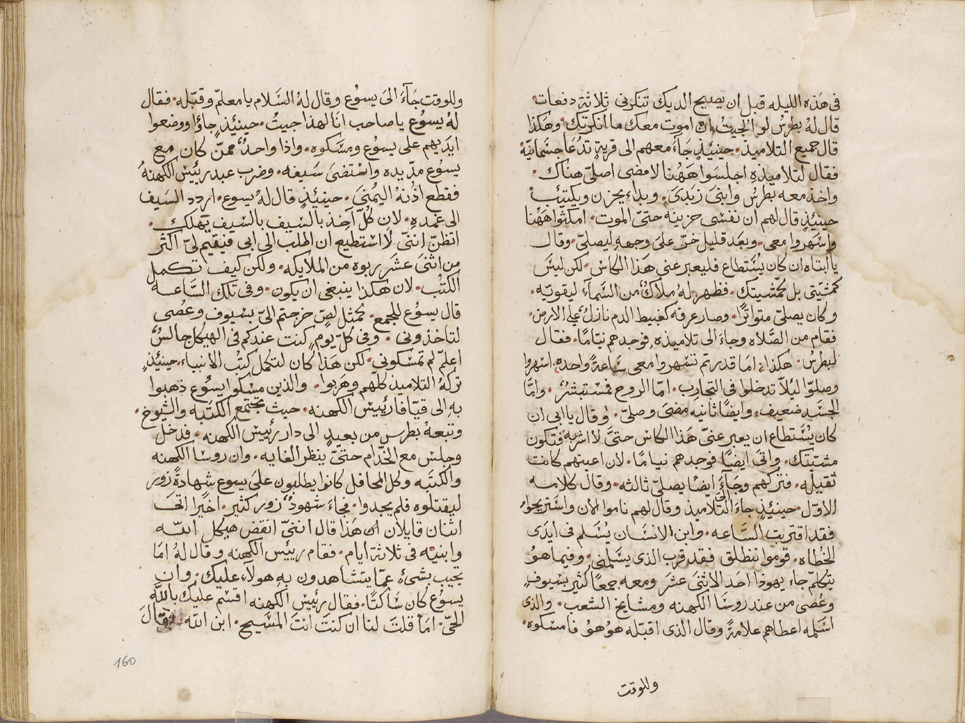 في هذه الليله قبل ان يصيح الديك تنكرني ثلاثة دفعات.
قال له بطرس لو الجيت ان اموت معك ما انكرتك. وهكذا
قال جميع التلاميذ. حينيذٍ جاءَ معهم الى قريةٍ تدعا جتمانيّة
فقال لتلاميذه اجلسوا هَهُنا لامضى اصلّي هناك.
واخذ معه بطرس وابنَى زبدى. وبداء يحزن ويكتيب
حينيذٍ قال لهم ان نفسى حزينه حتّى الموت. امكثوا هَهُنا
واسهروا معى. وبعد قليل خرّ على وجهه ليصلّي. وقال
يا ابتاه ان كان يُستطاع فليعبر عنى هذا الكاس. لكن ليس
كمشيّتى بل كمشيتك. فظهر له ملاكٌ من السّماءِ ليقويه.
وكان يصلّي متواترًا. وصار عرقه كغبيط الدم نازل على الارض.
فقام من الصّلاه وجاءَ الى تلاميذه. فوجدهم نيامًا. فقال
لبطرس. هكذا امَا قدرتم تسهروا معى ساعةً واحده. اسهروا
وصلّوا ليُلّا تدخلوا فى التجارب. امّا الروح فمستبشرٌ. وامّا
الجسد ضعيف. وايضًا ثانيه مضى وصلّى. وقال يا ابى ان
كان يُستطاع ان يعبر عنّى هذا الكاس حتّى لا اشربه فتكون
مشيّتك. واتى ايضًا فوجدهم نيامًا. لان اعينهم كانت
ثقيله. فتركهم وجاءَ ايضًا يصلّى ثالثه. وقال كلامه
الاوّل. حينيذٍ جاءَ الى التّلاميذ وقال لهم ناموا الان واستريحوا.
فقد اقتربت السّاعه. وابن الانسان يُسَلم فى ايدى
الخطاه. قوموا ننطلق فقد قرب الذى يسلمنى. وفيما هو
يتكلّم جاءَ يهوذا احد الاثنى عشر ومعه جمعًا كثير بسيوف
وعُصى من عند روسَا الكهنه ومشايخ الشعب. والذى
اسلمه اعطاهم علامةً وقال الذى اقبّله هو هو فامسكوه.
وللوقت
وللوقت جاءَ الى يسوع وقال له السّلام يا معلّم وقبّله. فقال
لهُ يسوع يا صاحب انَا لهذا جيتُ. حينيذٍ جاؤا ووضعوا
ايديهم على يسوع ومسكوه. واذا واحدٌ ممّن كان مع
يسوع مدّ يده واستضى سَيفه. وضرب عبد رييس الكهنه
فقطع اذنه اليمنى. حينيذٍ قال لهُ يسوع. اردد السَيف
الى غمده. لان كُلّ آخذ بالسيف بالسيف يهلك.
اتظنّ انّنى لا استطيع ان اطلب الى ابى فيقيم لى اكثر
من اثنى عشر ربوه من الملايكه. ولكن كيف تكمل
الكتب. لان هكذا ينبغى ان يكون. وفى تلك السّاعه
قال يسوع للجمع. كمثل لصّ خرجتم الىّ بسيوف وعُصى
لتاخذونى. وفى كلّ يوم كنت عندكم فى الهيكل جالسٌ
اعلّم لم تمسكونى. لكن هذا كان لتكمل كتب الانبياء. حينيذٍ
تركه التلاميذ كلّهم وهربوا. والذين مسكوا يسوع ذهبوا
به الى قيّافا رييس الكهنه. حيث مجتمع الكتبه والشيوخ.
وتبعه بطرس من بعيدٍ الى دار رييس الكهنه. فدخل
وجلس مع الخدّام حتّى ينظر الغايه. وان روسا الكهنه
والكتبه وكل المحافل كانوا يطلبون على يسوع شهادةً زور
ليقتلوه فلم يجدوا. فجاءَ شهود زور كثير. اخيرًا اتى
اثنان قايلان انّ هذا قال انّنى انقض هيكل الله
وابنيه فى ثلاثة ايام. فقام رييس الكهنه وقال لهُ امَا
تجيب بشىءٍ عمّا يتشاهدون به هولاء عليك. وان
يسوع كان ساكتًا. فقال رييس الكهنه اقسم عليك بالله
الحىّ. امَا قلتَ لنا ان كنتَ انت المسيح. ابن الله. فقال
160